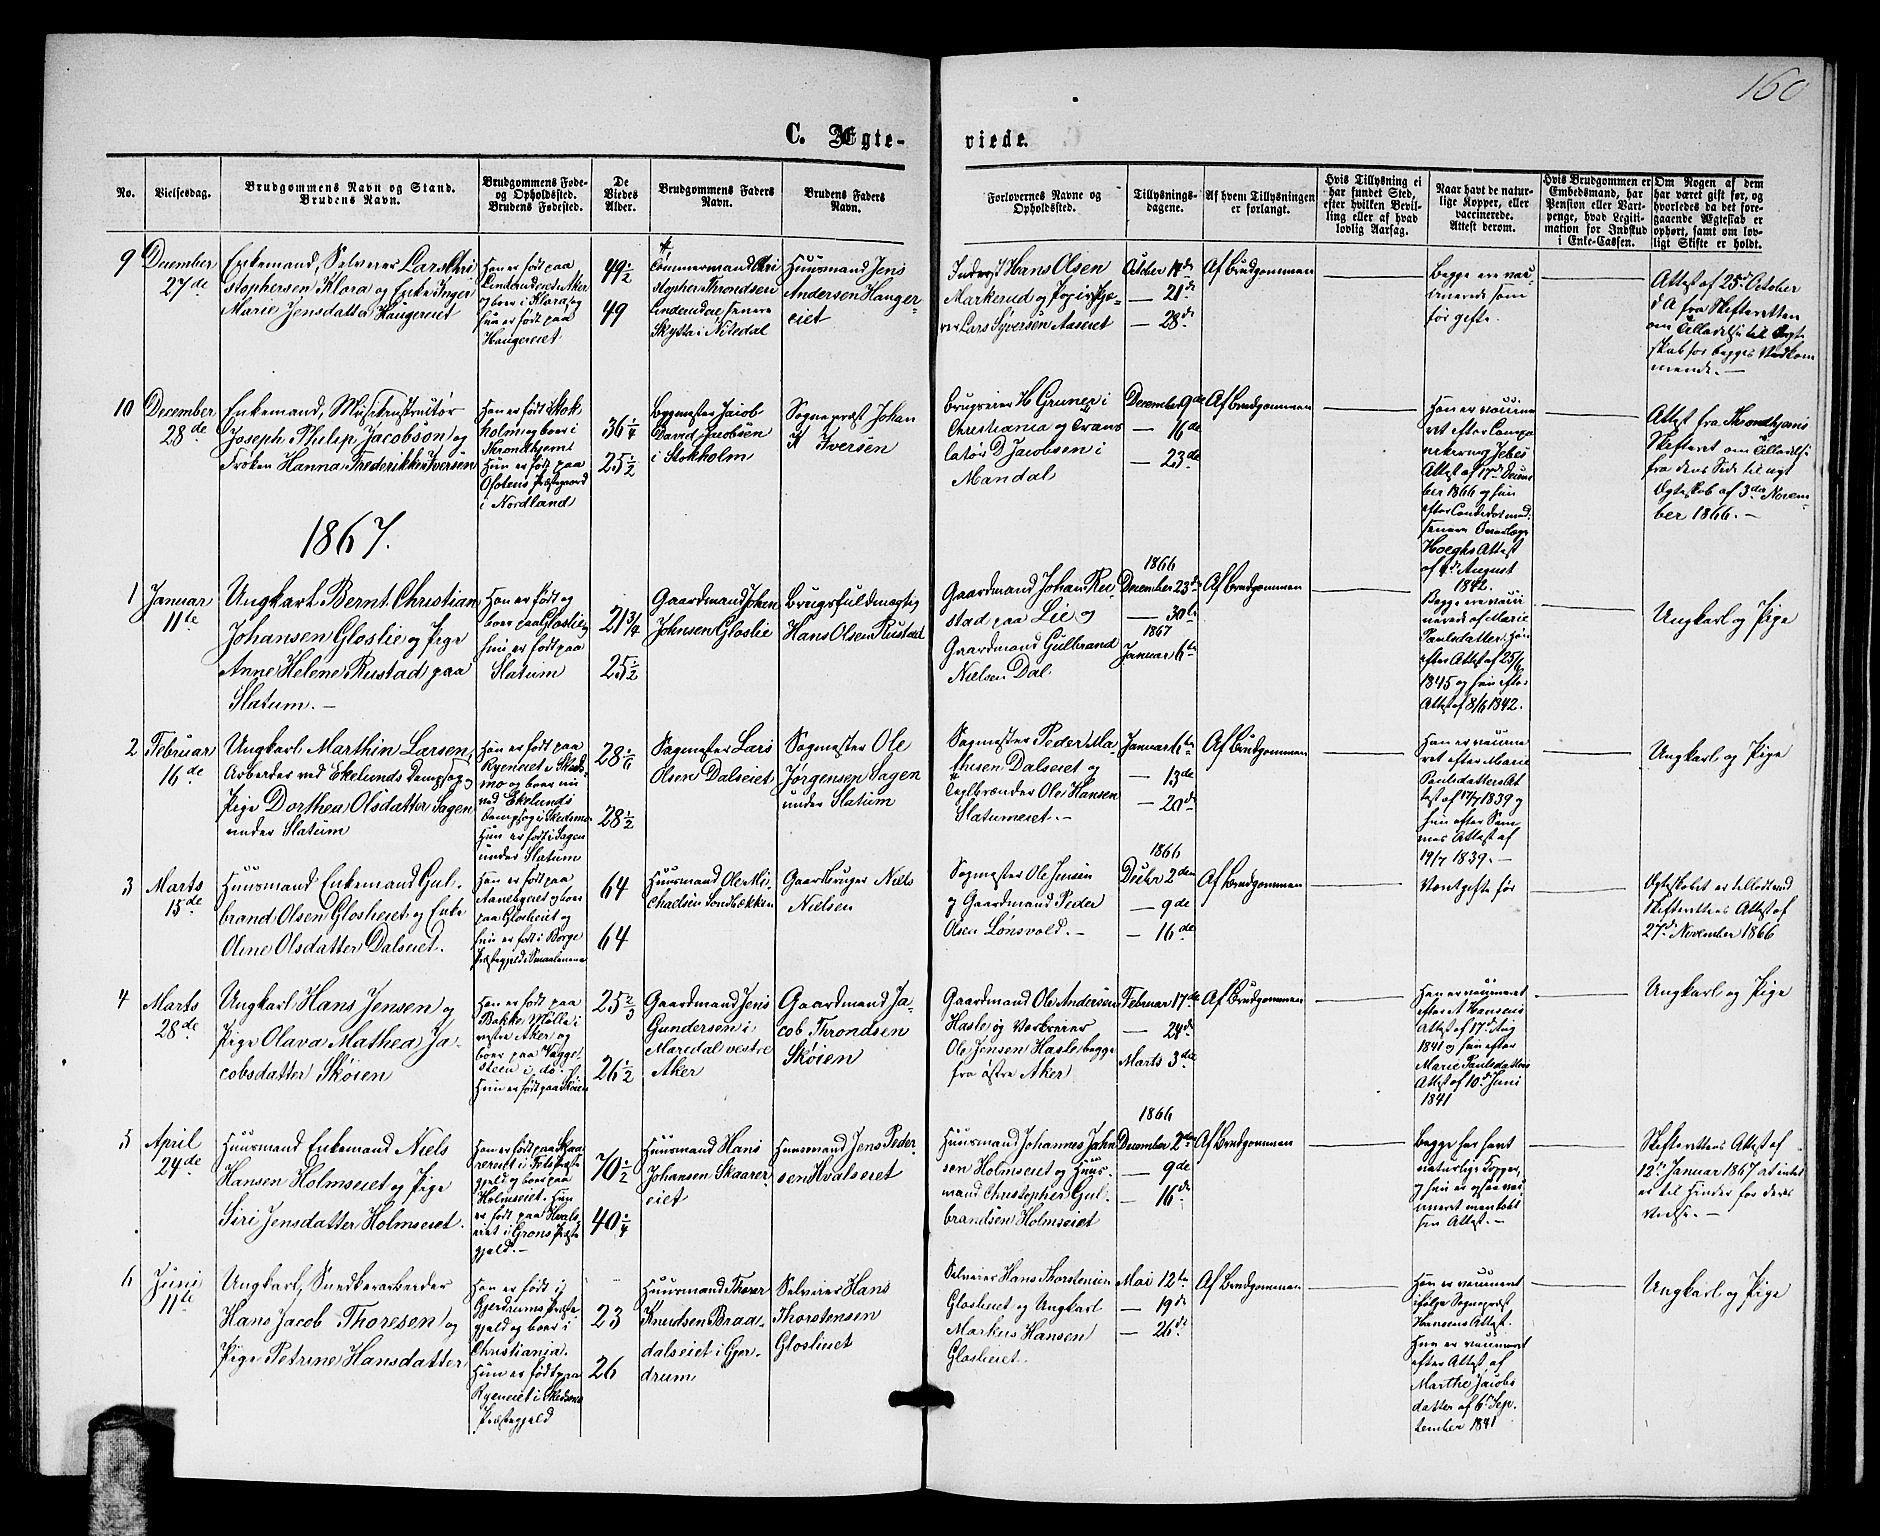 160
C. Ægte-
viede.
No.
Vielsesdag.
Brudgommens Navn og Stand.
Brudens Navn.
Brudgommens Føde-
og Opholdssted.
Brudens Fødested.
De
Viedes
Alder.
Brudgommens Faders
Navn.
Brudens Faders
Navn.
Forlovernes Navne og
Opholdssted.
Tillysnings-
dagene.
Af hvem Tillysningen
er forlangt.
Hvis Tillysning ei
har fundet Sted,
efter hvilken Bevil-
ling eller af hvad
lovlig Aarsag.
Naar havt de natur-
lige Kopper, eller
vaccinerede.
Attest derom.
Hvis Brudgommen er
Embedsmand, har
Pension eller Vart-
penge, hvad Legiti-
mation for Indskud
i Enke-Cassen.
Om Nogen af dem
har været gift før, og
hvorledes da det fore-
gaaende Ægteskab er
ophørt, samt om lov-
ligt Skifte er holdt.
9
December
27de
Enkemand, Selveier Lars Chri
stophersen Klara og Enke Inger
Marie Jensdatter Haugereiet
Han er født paa
Linderudeiet i Aker
og boer i Klara, og
hun er født paa
Haugereiet
49 1/2
49
Tømmermand Chri
stopher Throndsen
Linderudeie senere
Skytta i Nitedal
Huusmand Jens
Andersen Hauger-
eiet
Inderst Hans Olsen
Markerud og
Lars Syversen Aaseiet
October 14de
— 21de
— 28de
Af Brudgommen
Begge ere vac-
cinerede som
før gifte.
Attest af 25de October
d A fra Skifteretten
om Tilladelse til Ægte
skab for begges Vedkom
mende. —
10
December
28de
Enkemand, Musikinstructør
Joseph Philip Jacobson og
Frøken Hanna Frederikke Iversen
Han er født Stok
holm og boer i
Throndhjem
Hun er født paa
Ofotens Præstegaard
i Nordland
36 1/4
25 1/2
Bygmester Jacob
David Jacobsen
i Stokholm
Sognepræst Johan
A Iversen
Brugseier H Gruner i
Christiania og Trans
latør D Jacobsen i
Mandal
December 9de
— 16de
— 23de
Af Brudgommen
Han er vaccine
ret efter Compa
Attest af 17de Decem
ber 1866 og hun
efter
senere Overlæge
Hoeghs Attest
af 4de August
1842.
Attest fra Throndhjems
Skifteret om Tilladelse
fra dens Side til nyt
Ægteskab af 3die Novem
ber 1866. —
1867.
1
Januar
11te
Ungkarl Bernt Christian
Johansen Gloslie og Pige
Anne Helene Rustad paa
Slatum. —
Han er født og
boer paa Gloslie og
hun er født paa
Slatum
21 3/4
25 1/2
Gaardmand Johan
Johnsen Gloslie
Brugsfuldmægtig
Hans Olsen Rustad
Gaardmand Johan Ru-
stad paa Lie og
Gaardmand Gulbrand
Nielsen Dal
1866
December 23de
— 30te
1867
Januar 6te
Af Brudgommen
Begge ere vacci
nerede af Marie
Paulsdatter, han
efter Attest af 25/6
1845 og hun efter
Attest af 8/6 1842.
Ungkarl og Pige
2
Februar
16de
Ungkarl Marthin Larsen,
Arbeider ved Ekelunds Dampsag og
Pige Dorthea Olsdatter Sagen
under Slatum
Han er født paa
Ryeneiet i Skeds-
mo og boer nu
ved Ekelunds
Dampsag i Skedsmo
Hun er født i Sagen
under Slatum
28 1/6
28 1/2
Sagmester Lars
Olsen Dalseiet
Sagmester Ole
Jørgensen Sagen
under Slatum
Sagmester Peder Ma-
thisen Dalseiet og
Teglbrænder Ole Hansen
Slatumeiet. —
Januar 6te
— 13de
— 20de
Af Brudgommen
Han er vaccine
ret efter Marie
Paulsdatters At
test af 17/7 1839 og
hun efter Sam
mes Attest af
19/7 1839. —
Ungkarl og Pige
3
Marts
15de
Huusmand Enkemand Gul-
brand Olsen Gloslieiet og Enke
Anne Olsdatter Dalseiet.
Han er født paa
Aanebyeiet og boer
paa Glosheiet og
hun er født i Borge
Præstegjeld i Smaalenene
64
64
Huusmand Ole Mi-
chaelsen Sandbækken
Gaardbruger Niels
Nielsen
Sagmester Ole Jensen
og Gaardmand Peder
Olsen Lønsvold. —
1866
Decbr 2den
— 9de
— 16de
Af Brudgommen
Været gifte før
Ægteskabet er tilladt ved
Skifterettens Attest af
27de November 1866
4
Marts
28de
Ungkarl Hans Jensen og
Pige Olava Mathea Ja-
cobsdatter Skøien
Han er født paa
Bakke Mølle i
vestre Aker og
boer paa Vægge-
steen i do.
Hun er født paa Skøien
25 2/3
26 1/2
Gaardmand Jens
Gundersen i
Maridal vestre
Aker
Gaardmand Ja-
cob Throndsen
Skøien
Gaardmand Ole Andersen
Hasle og Værkseier
Ole Jensen Hasle begge
fra østre Aker
Februar 17de
— 24de
Marts 3die
Af Brudgommen
Han er vaccineret
efter Hansens
Attest af 17de Aug
1841 og hun efter
Marie Paulsdatters
Attest af 10de Juni
1841
Ungkarl og Pige
5
April
24de
Huusmand Enkemand Niels
Hansen Holmseiet og Pige
Siri Jensdatter Holmseiet.
Han er født paa Skaa
rereiet i Fets Præste
gjeld og boer paa
Holmseiet. Hun
er født paa Hvals
eiet i Grans Præste
gjeld. —
70 1/2
40 1/4
Huusmand Hans
Johansen Skaarer
eiet
Huusmand Jens Peder
sen Hvalseiet
Huusmand Johannes Jahn
sen Holmseiet og Huus-
mand Christopher Gul-
brandsen Holmseiet
1866
December 2den
— 9de
— 16de
Af Brudgommen
Begge har havt
naturlige Kopper,
og hun er ogsaa vac
cineret men tabt
sin Attest. —
Skifterettens Attest af
12te Januar 1867 at intet
er til Hinder for deres
Vielse. —
6
Juni
11te
Ungkarl, Snedkerarbeider
Hans Jacob Thoresen og
Pige Petrine Hansdatter
Han er født i
Gjerdrums Præste
gjeld og boer i
Christiania.
Hun er født paa
Ryeneiet i Skedsmo
Præstegjeld
23
26
Huusmand Thorer
Knudsen Brad-
dalseiet i Gjer-
drum
Selveier Hans
Thorstensen
Gloslieiet
Selveier Hans Thorstensen
Glosheiet og Ungkarl
Markus Hansen
Glosheiet.
Mai 12te
— 19de
— 26de
Af Brudgommen
Han er vaccineret
ifølge Sognepræst
Hansens Attest.
Hun er vaccineret
efter Attest af
Marthe Jacobs
datter af 6te Sep-
tember 1841
Ungkarl og Pige